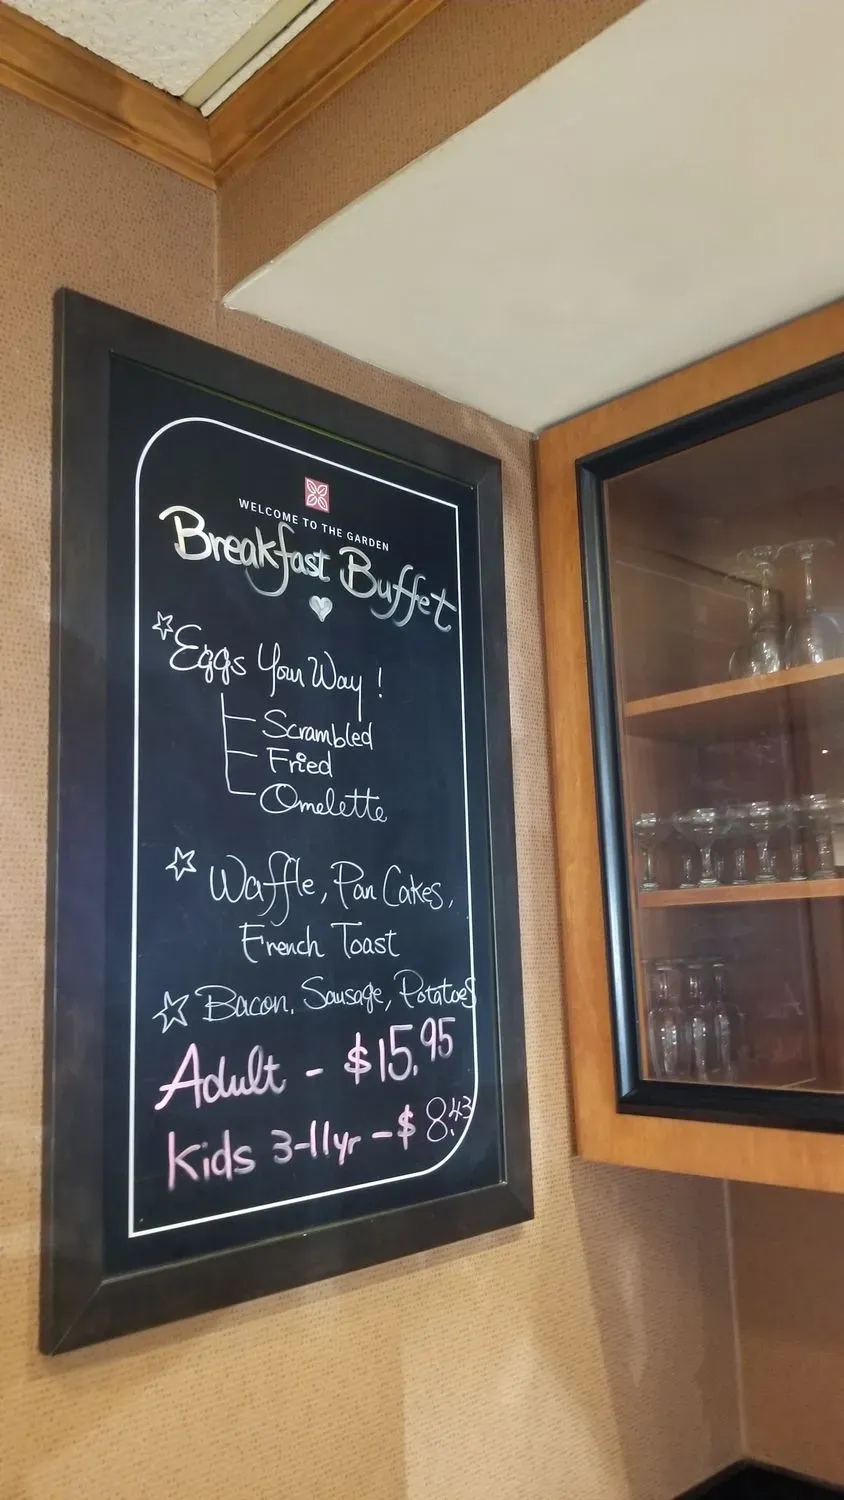 WELCOME TO THE GARDEN
Breakfast Buffet
Eggs Your Way !
Scrambled
Fried
Omelette
Waffle, Pan Cakes,
French Toast
Bacon, Sausage, Potatoes
Adult - $15.95
Kids 3-11yr - $8.43